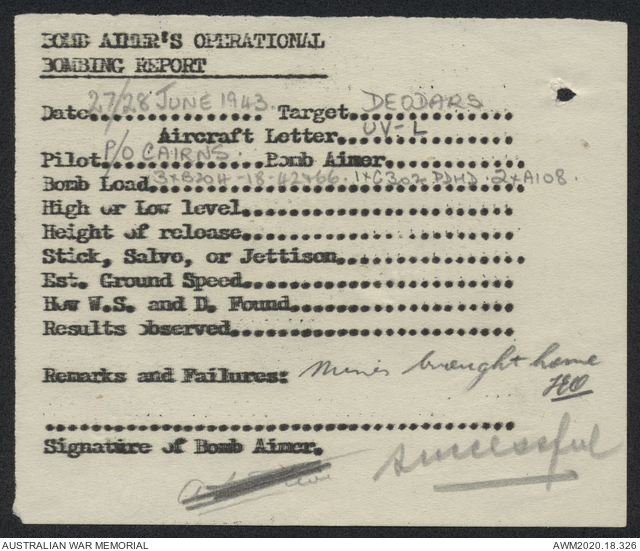 BOMB AIMER'S OPERATIONAL
BOMBING REPORT
Date 27/28 JUNE 1943. Target DEODARS
Aircraft Letter UV-L
Pilot P/O CAIRNS. Bomb Aimer
Bomb Load 3xB204-18-42466. 1xC302 PDMD. 2xA108.
High or Low level
Height of release
Stick, Salvo, or Jettison
Est. Ground Speed
How W.S. and D. Found
Results observed
Remarks and Failures: Mines brought home
Signature of Bomb Aimer.
successful
AUSTRALIAN WAR MEMORIAL
AWM2020.18.326